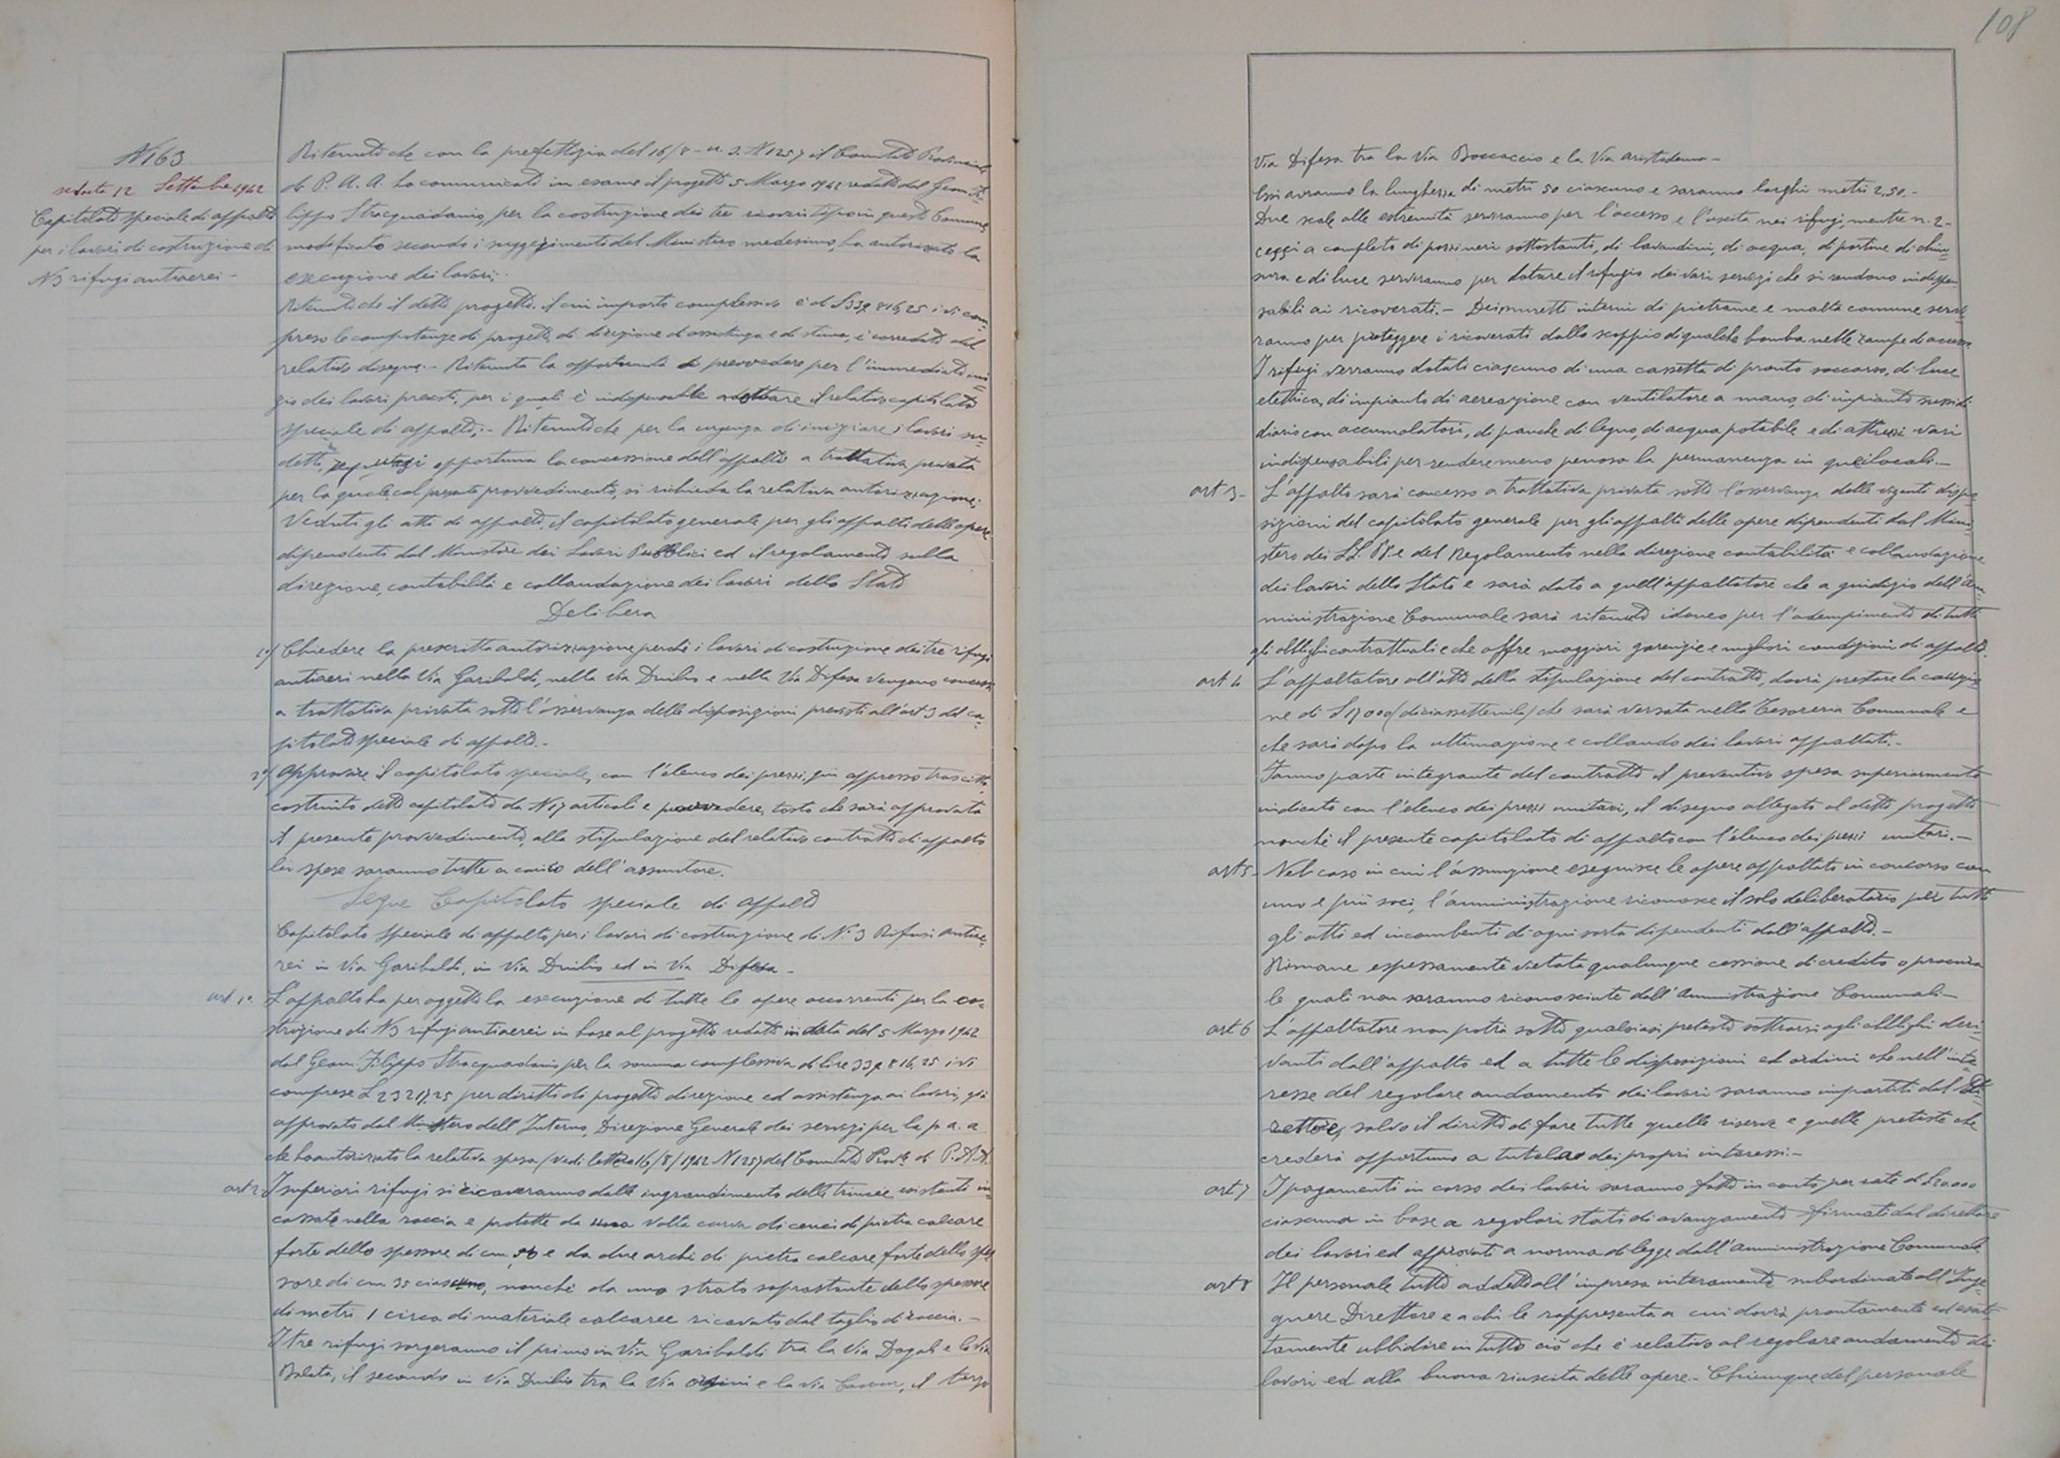 108
N 163
seduta 12 Settembre 1942
Capitolato speciale di appalto
per i lavori di costruzione di
N3 rifugi antiaerei -
Ritenuto che con la prefettizia del 16/8 - u. s. N 1257 il Comitato Provinciale
di P. A. A. ha comunicato in esame il progetto 5 Marzo 1942 redatto dal Geom. Fi-
lippo Stracquadanio, per la costruzione dei tre ricoveri tipo in questo Comune,
modificato secondo i suggerimenti del Ministero medesimo, ha autorizzato la
esecuzione dei lavori;
Ritenuto che il detto progetto, il cui importo complessivo è di L 339 816,25 ivi com-
preso le competenze di progetto, di direzione di assistenza e di stima, è corredato del
relativo disegno. - Ritenuta la opportunità di provvedere per l'immediato ini-
zio dei lavori previsti, per i quali è indispensabile adottare il relativo capitolato
speciale di appalto; - Ritenuto che per la urgenza di iniziare i lavori su-
detti, opportuna la concessione dell'appalto a trattativa privata
per la quale col presente provvedimento, si richieda la relativa autorizzazione;
Veduti gli atti di appalto, il capitolato generale per gli appalti delle opere
dipendenti dal Ministero dei Lavori Pubblici ed il regolamento sulla
direzione, contabilità e collaudazione dei lavori dello Stato
Delibera
1°/ Chiedere la prescritta autorizzazione perchè i lavori di costruzione dei tre rifugi
antiaerei nella Via Garibaldi, nella via Duilio e nella Via Difesa vengano concessi
a trattativa privata sotto l'osservanza delle disposizioni previsti all'art 3 del ca-
pitolato speciale di appalto. -
2°/ Approvare il capitolato speciale, con l'elenco dei prezzi, qui appresso trascritto
costruito detto capitolato da N 17 articoli e provvedere, tosto che sarà approvato
il presente provvedimento, alla stipulazione del relativo contratto di appalto
le spese saranno tutte a carico dell'assuntore.
Segue Capitolato speciale di appalto
Capitolato speciale di appalto per i lavori di costruzione di N° 3 Rifugi antiae-
rei in Via Garibaldi, in Via Duilio ed in Via Difesa -
art 1° L'appalto ha per oggetto la esecuzione di tutte le opere occorrenti per la co-
struzione di N3 rifugi antiaerei in base al progetto redatto in data del 5 Marzo 1942
dal Geom. Filippo Stracquadanio per la somma complessiva di lire 339 816,25 ivi
comprese L 23217,25 per diritti di progetto direzione ed assistenza ai lavori, già
approvato dal Ministero dell'Interno, Direzione Generale dei servizi per la p. a. a
che ha autorizzato la relativa spesa (vedi lettera 16/8/1942 N 1257 del Comitato Prov.le di P.A.A.
art 2° I superiori rifugi si ricaveranno dallo ingrandimento delle trincee esistenti in-
cassate nella roccia e protette da una volta curva di conci di pietra calcare
forte dello spessore di cm 50 e da due archi di pietra calcare forte dello spes
sore di cm 35 ciascuno, nonchè da uno strato soprastante dello spessore
di metri 1 circa di materiale calcaree ricavato dal taglio di roccia. -
I tre rifugi sorgeranno il primo in Via Garibaldi tra la Via Dogali e la via
Balata, il secondo in Via Duilio tra la Via Orsini e la via Cavour, il terzo
Via Difesa tra la Via Boccaccio e la Via Aristodemo -
Essi avranno la lunghezza di metri 50 ciascuno e saranno larghi metri 2,50. -
Due scale alle estremità serviranno per l'accesso e l'uscita nei rifugi, mentre n. 2 -
cessi a completo di pozzi neri sottostanti, di lavandini, di acqua, di portine di chiu-
sura e di luce serviranno per dotare il rifugio dei vari servizi che si rendono indispen
sabili ai ricoverati. - Dei muretti interni di pietrame e malta comune servi-
ranno per proteggere i ricoverati dallo scoppio di qualche bomba nelle rampe di accesso
I rifugi verranno dotati ciascuno di una cassetta di pronto soccorso, di luce
elettrica, di impianto di aereazione con ventilatore a mano, di impianto sussi-
diario con accumolatori, di panche di legno, di acqua potabile e di attrezzi vari
indispensabili per rendere meno penosa la permanenza in quei locali. -
art 3 - L'appalto sarà concesso a trattativa privata sotto l'osservanza delle vigenti dispo-
sizioni del capitolato generale per gli appalti delle opere dipendenti dal Mini-
stero dei LL. PP. e del Regolamento nella direzione contabilità e collaudazione
dei lavori dello Stato e sarà dato a quell'appaltatore che a giudizio dell'Am-
ministrazione Comunale sarà ritenuto idoneo per l'adempimento di tutti
gli obblighi contrattuali e che offre maggiori garenzie e migliori condizioni di appalto.
art 4 L'appaltatore all'atto della stipulazione del contratto, dovrà prestare la cauzio-
ne di L 17 000 (diciassettemila) che sarà versata nella Tesoreria Comunale e
che sarà dopo la ultimazione e collaudo dei lavori appaltati. -
Fanno parte integrante del contratto il preventivo spesa superiormente
indicato con l'elenco dei prezzi unitari, il disegno allegato al detto progetto
nonchè il presente capitolato di appalto con l'elenco dei prezzi unitari. -
art 5 - Nel caso in cui l'assunzione eseguisce le opere appaltate in concorso con
uno e più soci, l'amministrazione riconosce il solo deliberatario per tutti
gli atti ed incombenti di ogni sorta dipendenti dall'appalto. -
Rimane espressamente vietata qualunque cessione di credito o procura
le quali non saranno riconosciute dall'Amministrazione Comunale -
art 6 L'appaltatore non potrà sotto qualsiasi pretesto sottrarsi agli obblighi deri-
vanti dall'appalto ed a tutte le disposizioni ed ordini che nell'inte-
resse del regolare andamento dei lavori saranno impartiti dal Di-
rettore, salvo il diritto di fare tutte quelle riserve e quelle proteste che
crederà opportuno a tutela dei propri interessi. -
art 7 I pagamenti in corso dei lavori saranno fatti in conto, per rate di L 20.000
ciascuna in base a regolari stati di avanzamento firmati dal direttore
dei lavori ed approvati a norma di legge dall'Amministrazione Comunale
art 8 Il personale tutto addetto all'impresa interamente subordinato all'Inge-
gnere Direttore e a chi lo rappresenta a cui dovrà prontamente ed esat-
tamente ubbidire in tutto ciò che è relativo al regolare andamento dei
lavori ed alla buona riuscita delle opere - Chiunque del personale